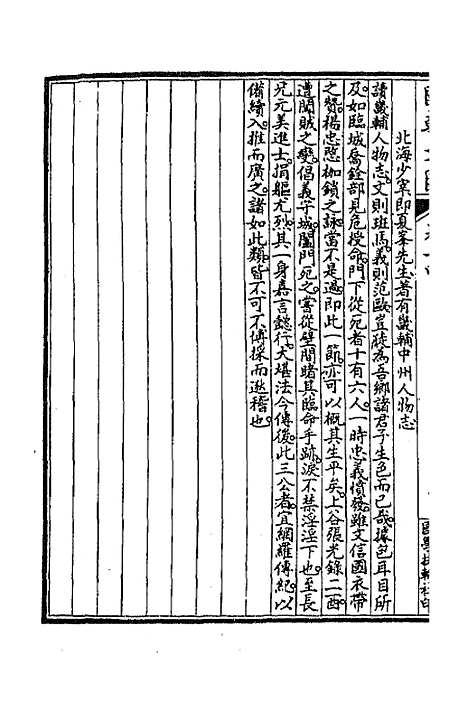 北海少宰即夏峯先生著有畿輔中州人物志
讀畿輔人物志文則班馬義則范歐豈徒為吾鄉諸君子生色而已哉據包耳目所
及如臨城喬銓部見危授命門下從死者十有六人一時忠義憤發雖文信國衣帶
之贊楊忠愍枷鎖之詠當不是過即此一節亦可以概其生平矣上谷張光錄二酉
遭闖賊之變倡義守城闔門死之嘗從壁間睹其臨命手跡淚不禁淫淫下也至長
兄元美進士捐軀尤烈其一身嘉言懿行大堪法今傳後此三公者宜網羅傳紀以
備續入推而廣之諸如此類皆不可不博採而遜稽也